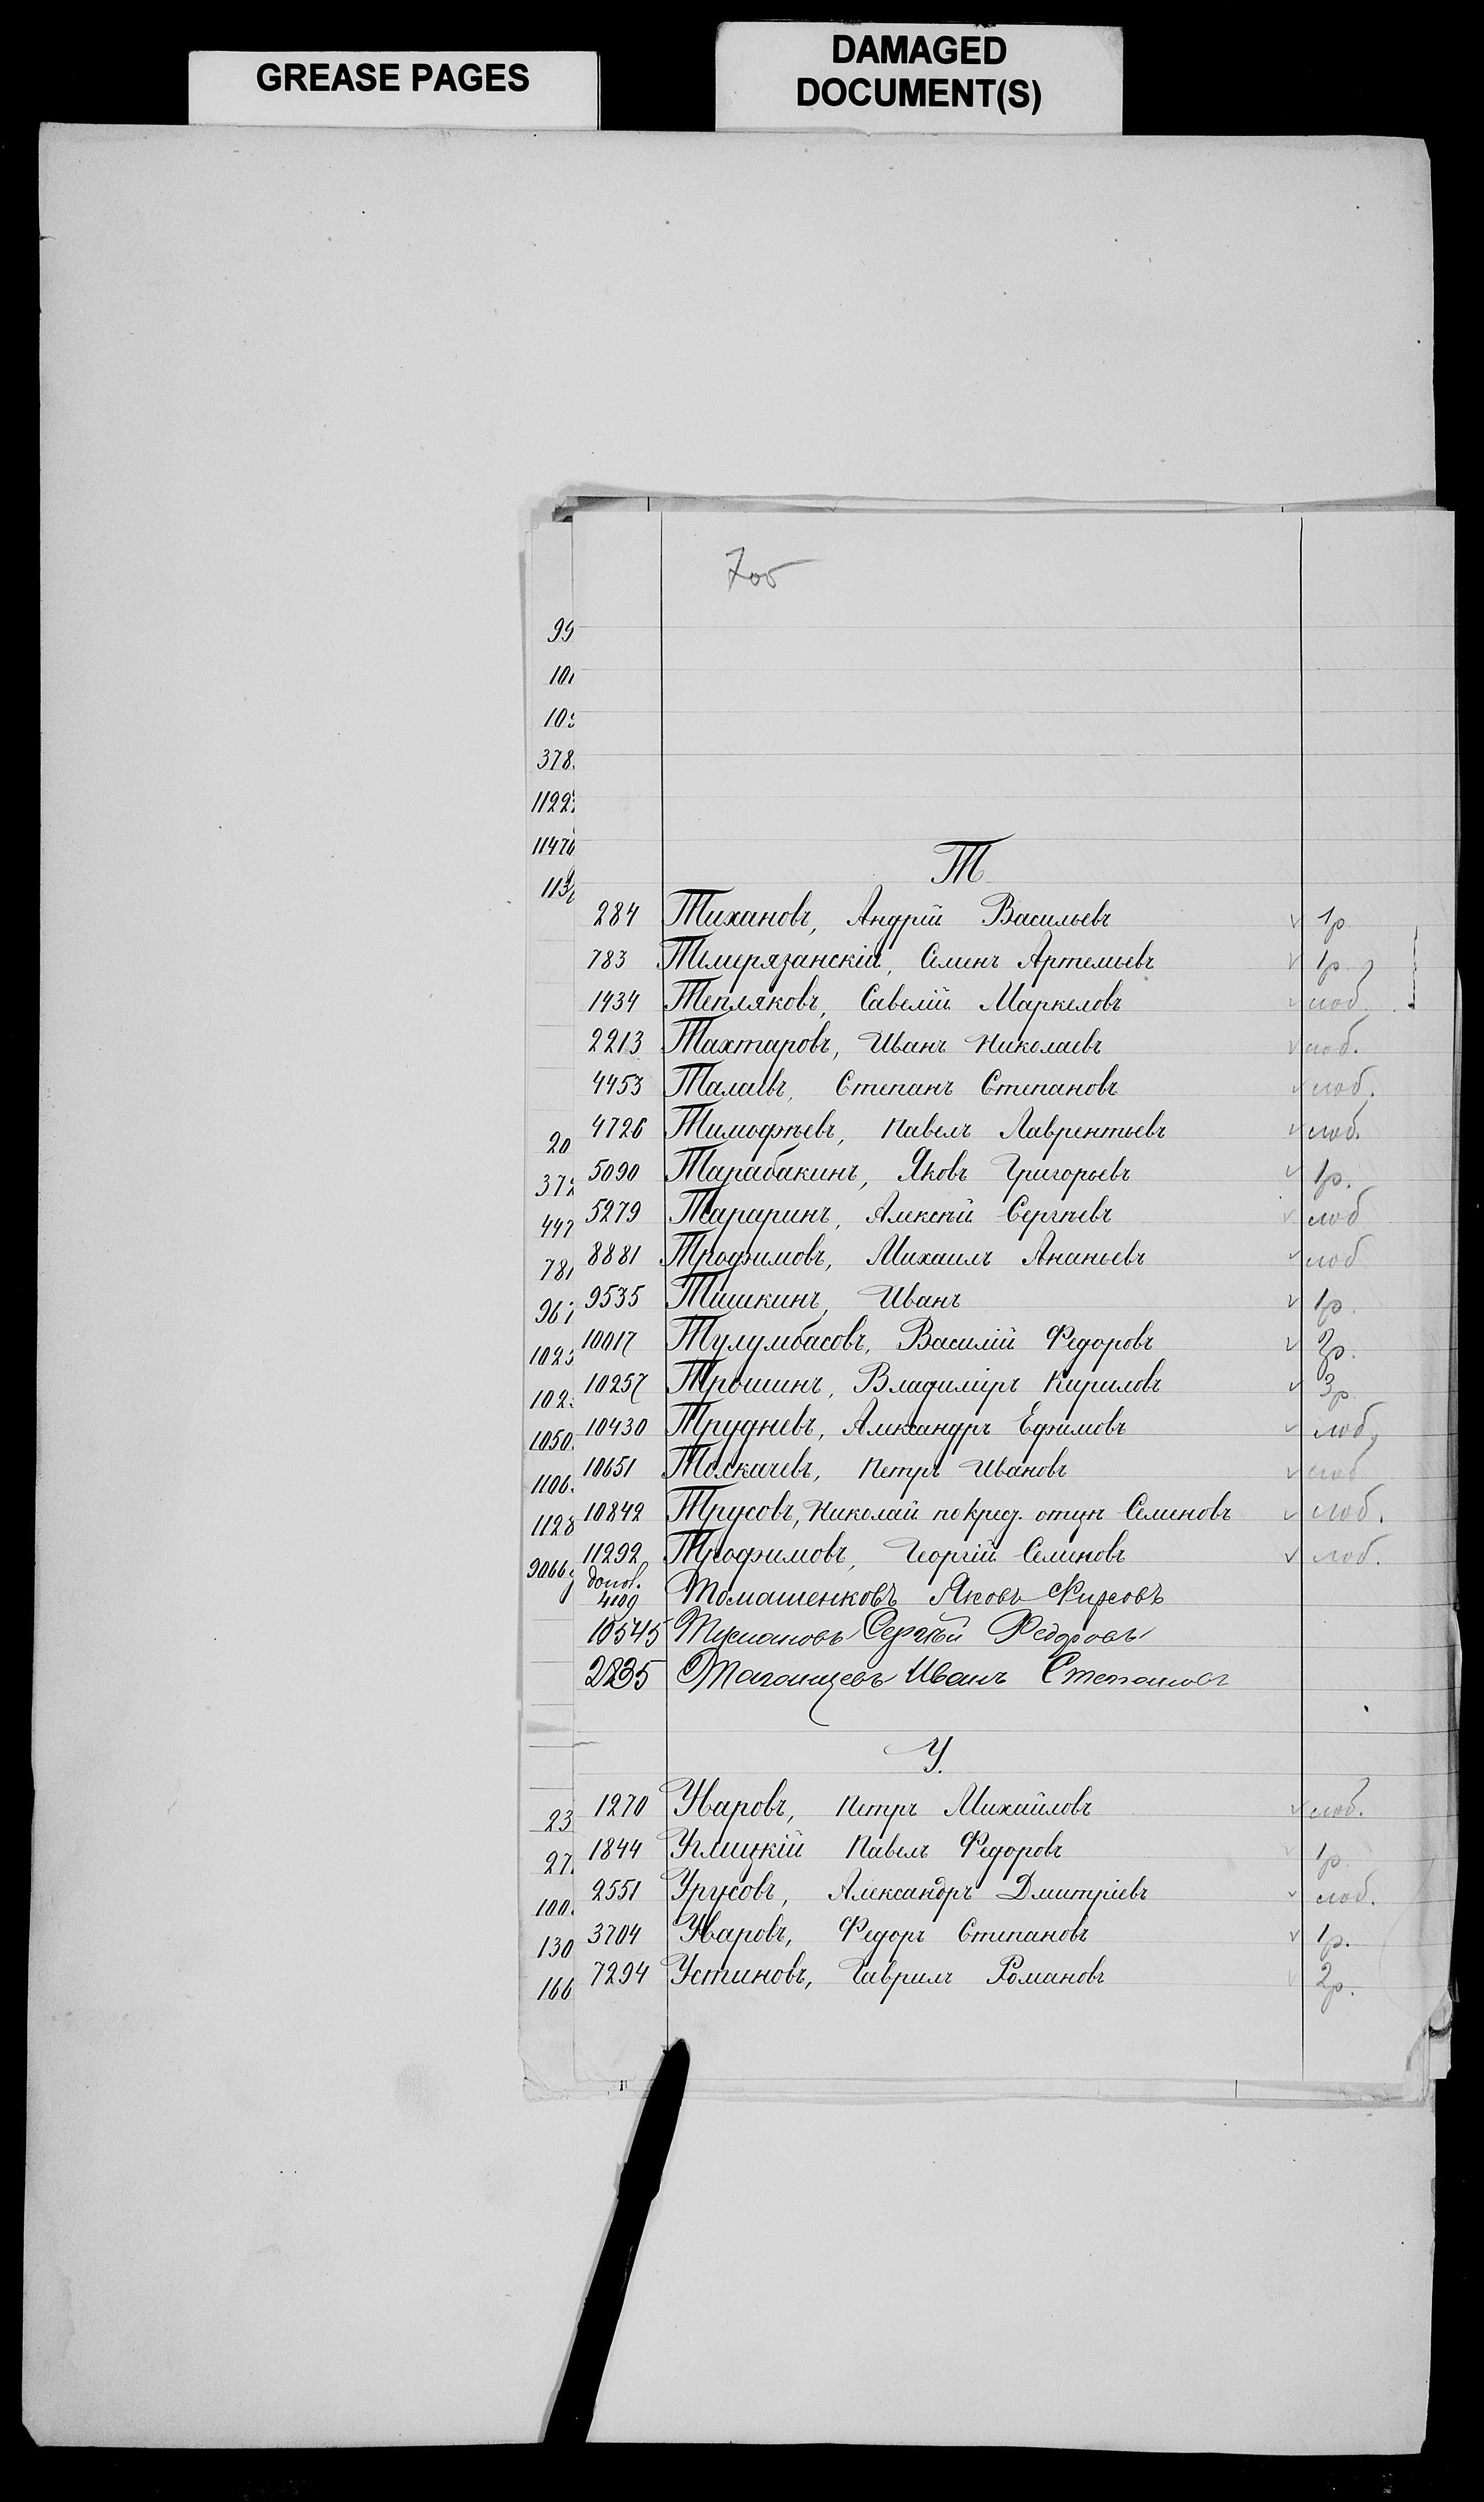 GREASE PAGES
DAMAGED
DOCUMENT(S)
99
10
10
378
1122
1147
113
Т
284 Тихановъ, Андрій Васильевъ 1р.
783 Темерязанскій, Семенъ Артемьевъ 1р.
1434 Тепляковъ, Савелій Маркеловъ слоб.
2213 Тахтаровъ, Иванъ Николаевъ слоб.
4453 Талаевъ, Степанъ Степановъ слоб.
4726 Тимофѣевъ, Павелъ Лаврентьевъ слоб.
5090 Тарабакинъ, Яковъ Григорьевъ 1р.
5279 Тараринъ, Алексѣй Сергѣевъ слоб
8881 Трофимовъ, Михаилъ Ананьевъ слоб
9535 Тишкинъ, Иванъ 1р.
10017 Тулумбасовъ, Василій Федоровъ 2р.
10257 Трошинъ, Владиміръ Кириловъ 3р.
10430 Трудневъ, Александръ Ефимовъ слоб,
10651 Толкачевъ, Петръ Ивановъ слоб
10842 Трусовъ, Николай по кресд. отцѣ Семеновъ слоб.
11292 Трофимовъ, Георгій Семеновъ слоб.
допол.
4109 Томашенковъ Яковъ
10545 Сергѣй Федоровъ
2835 Таганцевъ Иванъ Степановъ
20
372
447
781
967
1023
102
1050
1106
1128
9066
У.
1270 Уваровъ, Петръ Михайловъ слоб.
1844 Углицкій Павелъ Федоровъ 1р.
2551 Урусовъ, Александръ Дмитріевъ слоб.
3704 Уваровъ, Федоръ Степановъ 1р.
7294 Устиновъ, Гаврилъ Романовъ 2р.
23
27
100
130
166